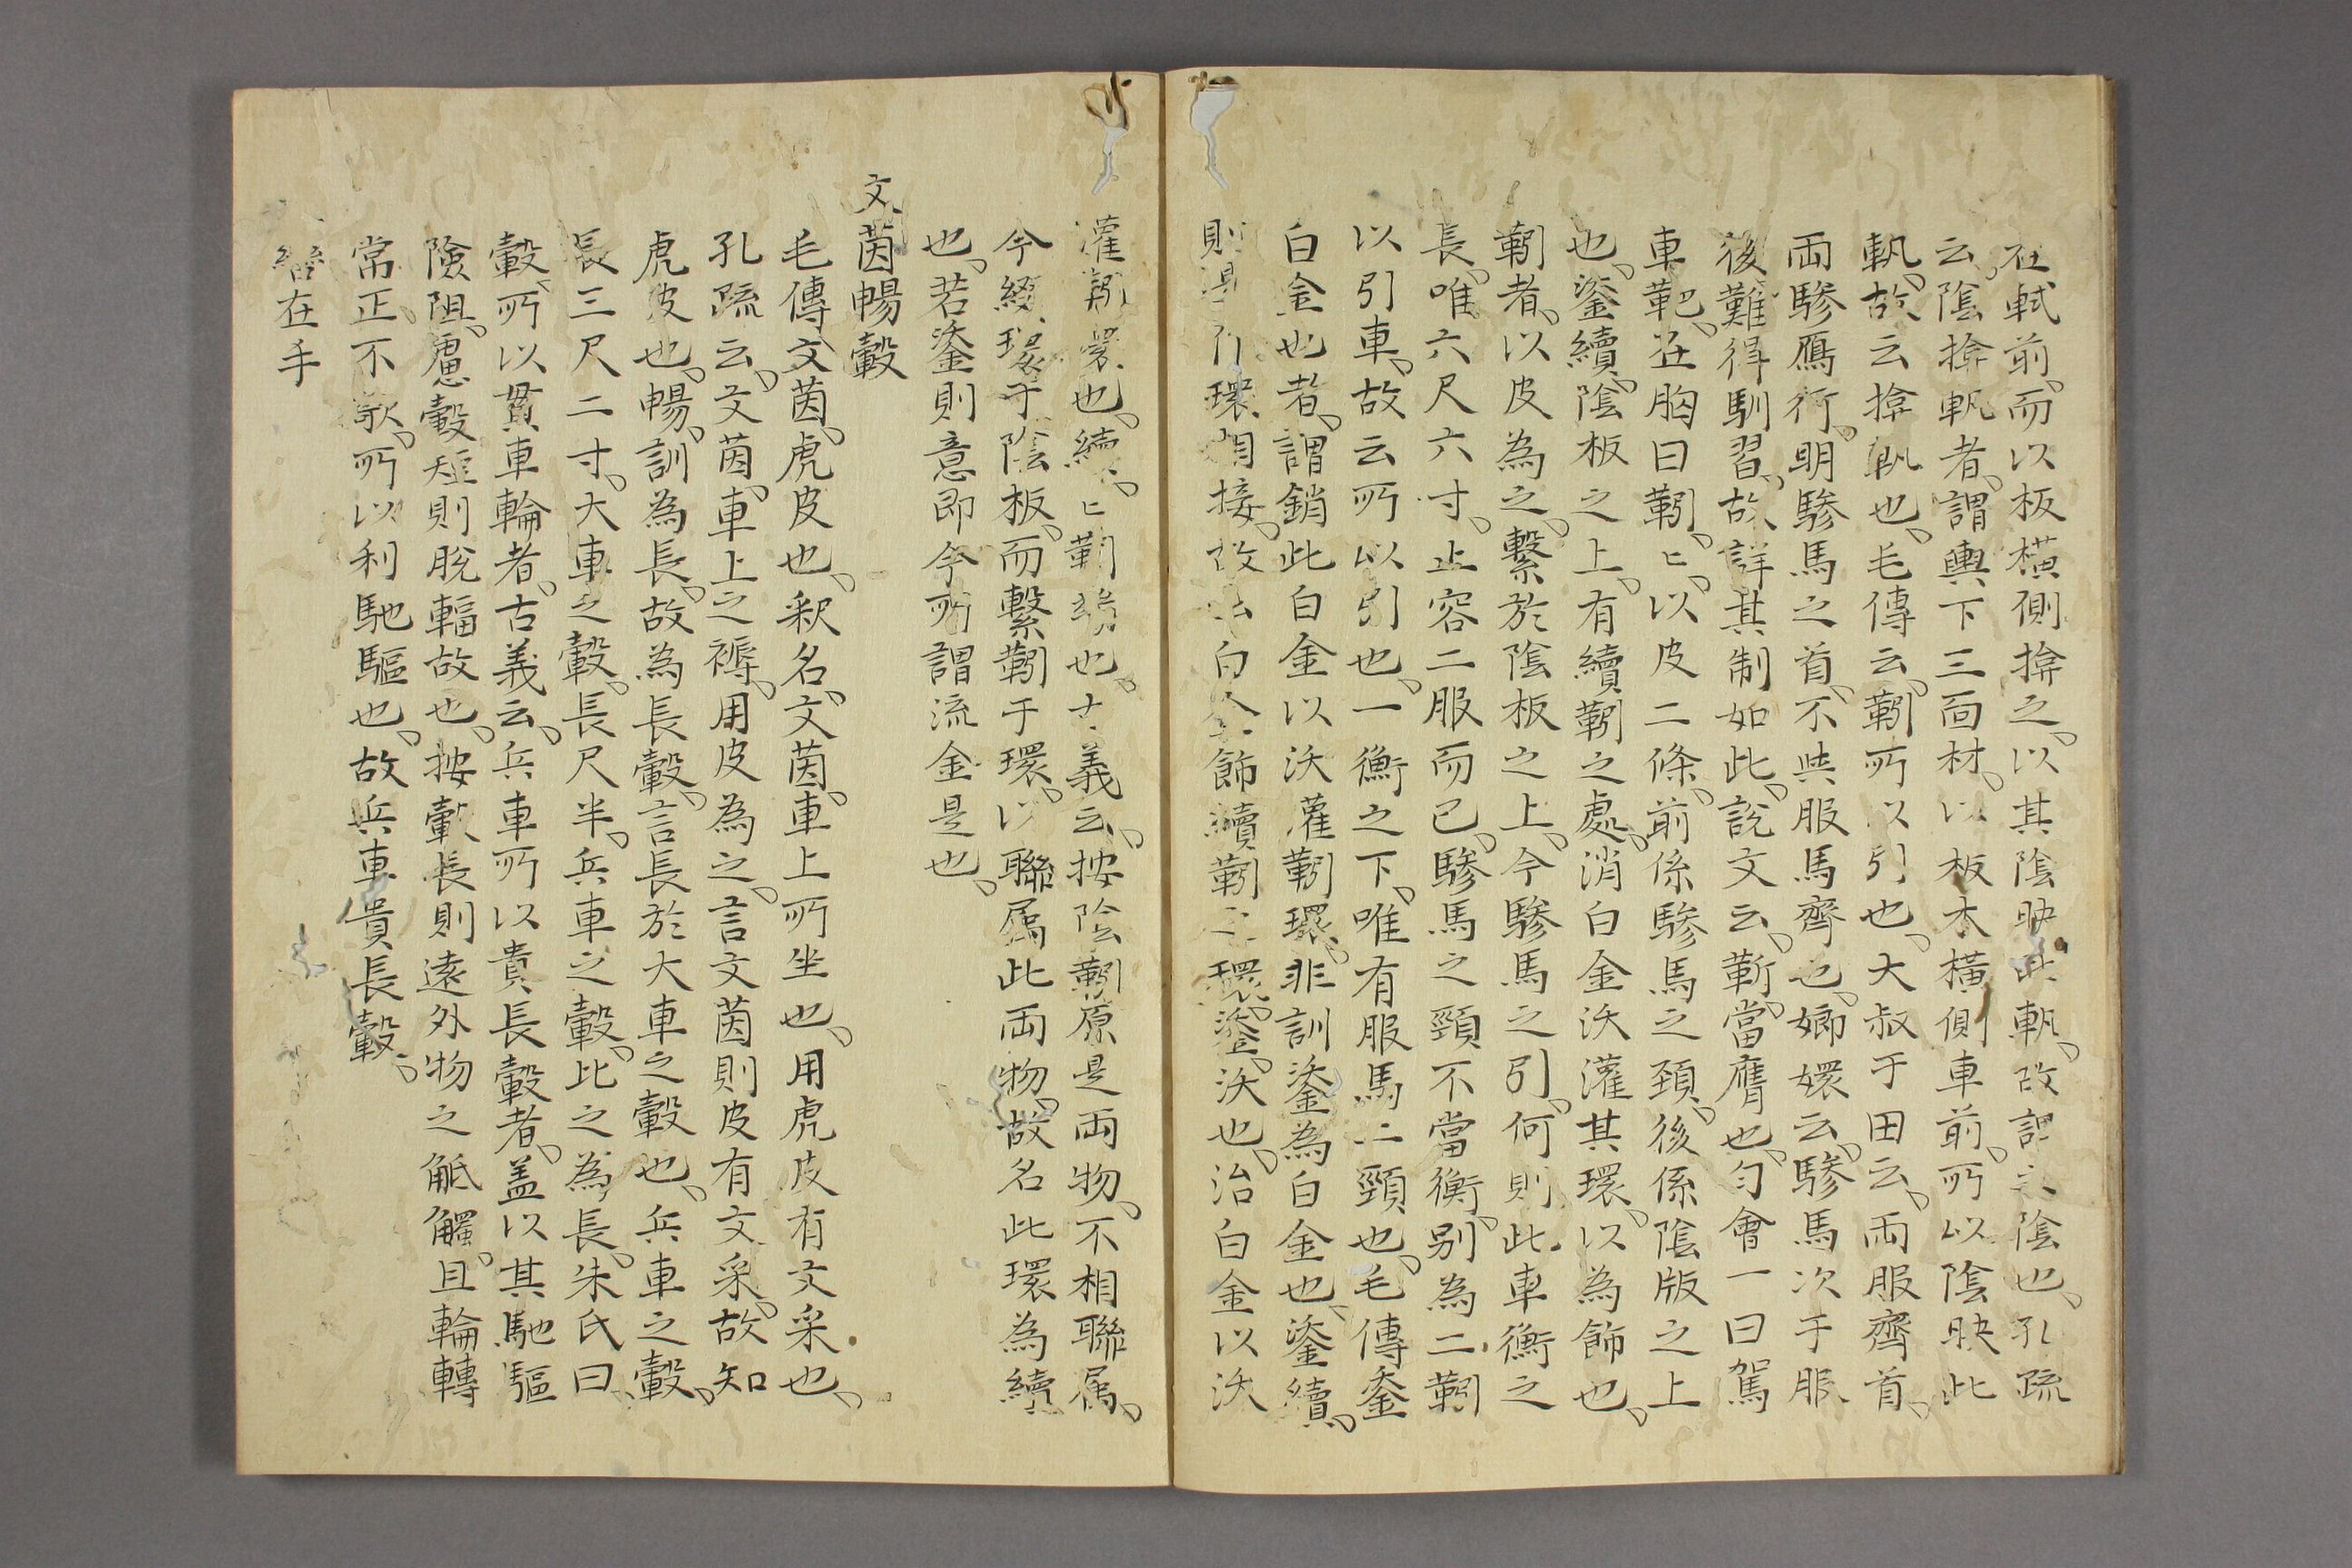 在軾前、而以板橫側揜之、以其陰映此軌、故謂之陰也、孔疏
云、陰揜軌者、謂輿下三面材、以板木橫側車前、所以陰映此
軌、故云揜軌也、毛傳云、靷所以引也、大叔于田云、兩服齊首、
兩驂鴈行、明驂馬之首、不與服馬齊也、嫏嬛云、驂馬次于服
後、難得馴習、故詳其制如此、說文云、靳、當膺也、勻會一曰駕
車𩊆、在胸曰靷、〻以皮二條、前係驂馬之頚、後係陰版之上
也、鋈續、陰板之上、有續靷之處、消白金沃灌其環、以為飾也、
靷者、以皮為之、繫於陰板之上、今驂馬之引、何則此車衡之
長、唯六尺六寸、止容二服而已、驂馬之頸不當衡、別為二靷
以引車、故云所以引也、一衡之下、唯有服馬二頸也、毛傳鋈
白金也者、謂銷此白金以沃灌靷環、非訓鋈為白金也、鋈續、
則是作環相接、故云白金飾續靷之環、鋈、沃也、冶白金以沃
灌靷環也、續、〻靷端也、古義云、按陰靷原是兩物、不相聯属、
今綴環于陰板、而繫靷于環、以聯属此兩物、故名此環為續
也、若鋈則意即今所謂流金是也、
文茵暢轂
毛傳、文茵、虎皮也、釈名、文茵、車上所坐也、用虎皮有文采也、
孔疏云、文茵、車上之褥、用皮為之、言文茵則皮有文采、故知
虎皮也、暢、訓為長、故為長轂、言長於大車之轂也、兵車之轂、
長三尺二寸、大車之轂、長尺半、兵車之轂、比之為長、朱氏曰、
轂、所以貫車輪者、古義云、兵車所以貴長轂者、盖以其馳驅
險阻、慮轂短則脫輻故也、按轂長則遠外物之觝觸、且輪轉
常正、不欹、所以利馳驅也、故兵車貴長轂、
轡在手